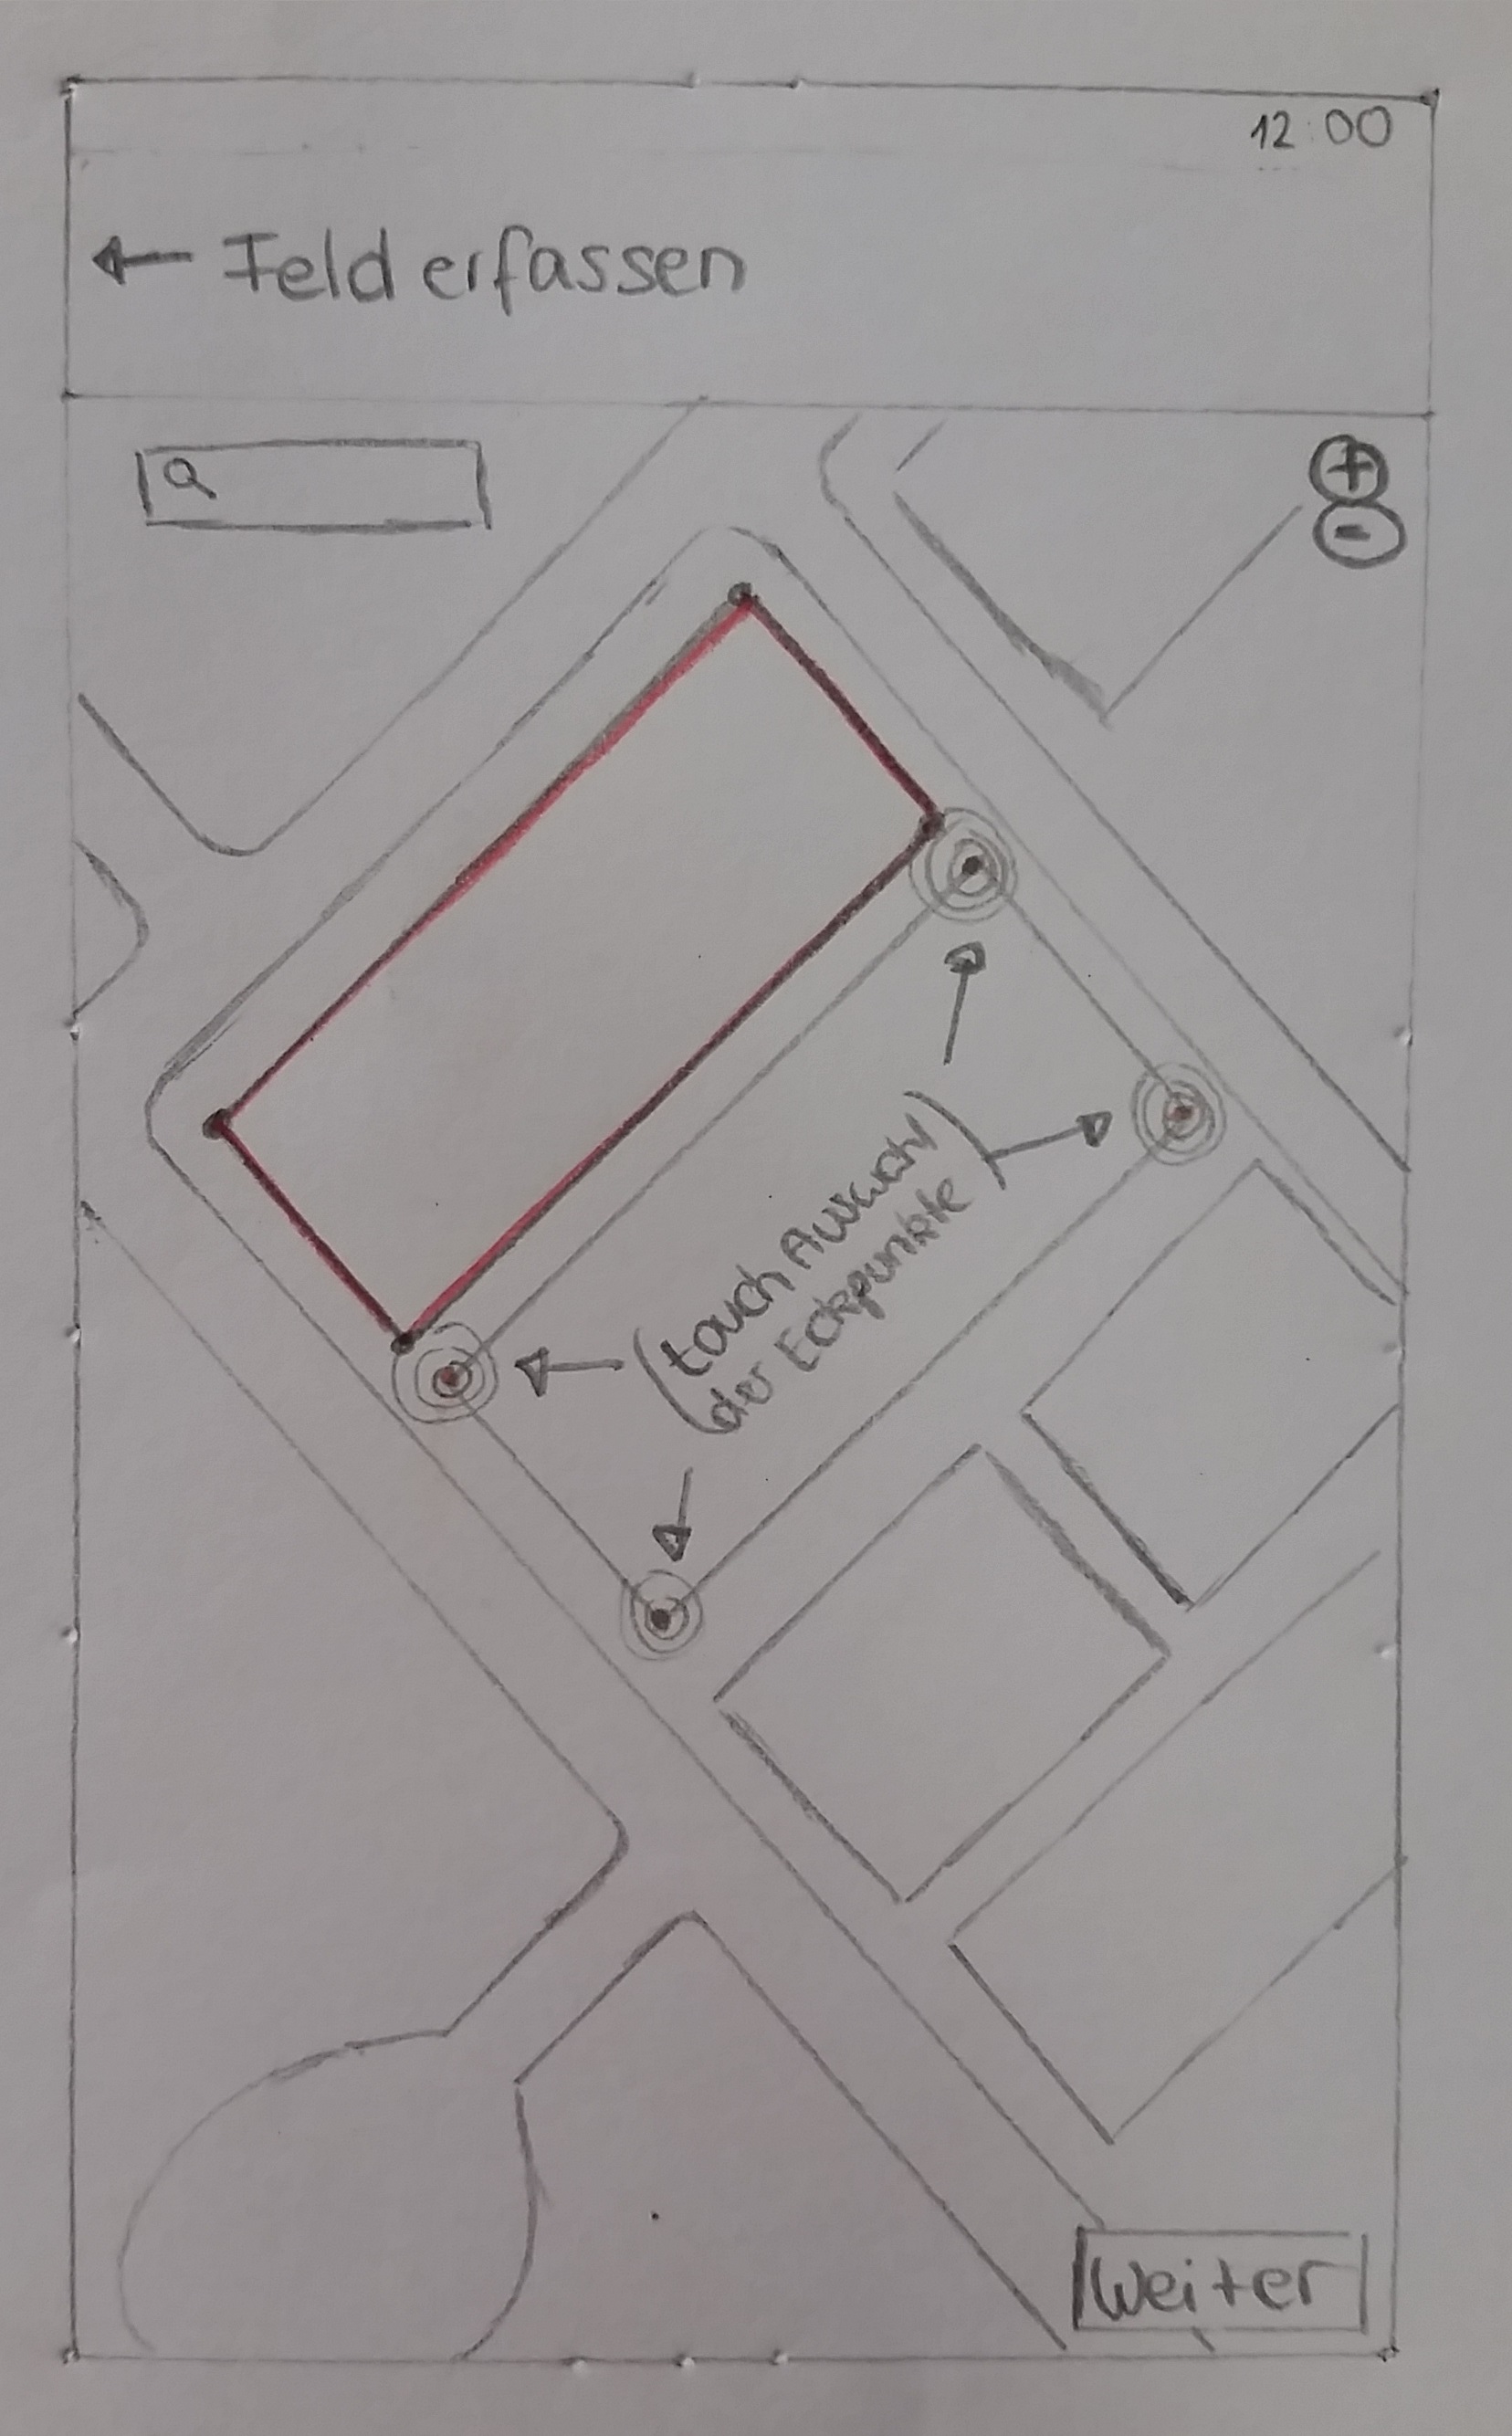 12:00
← Feld erfassen
+
-
(touch Auswahl)
der Eckpunkte
Weiter